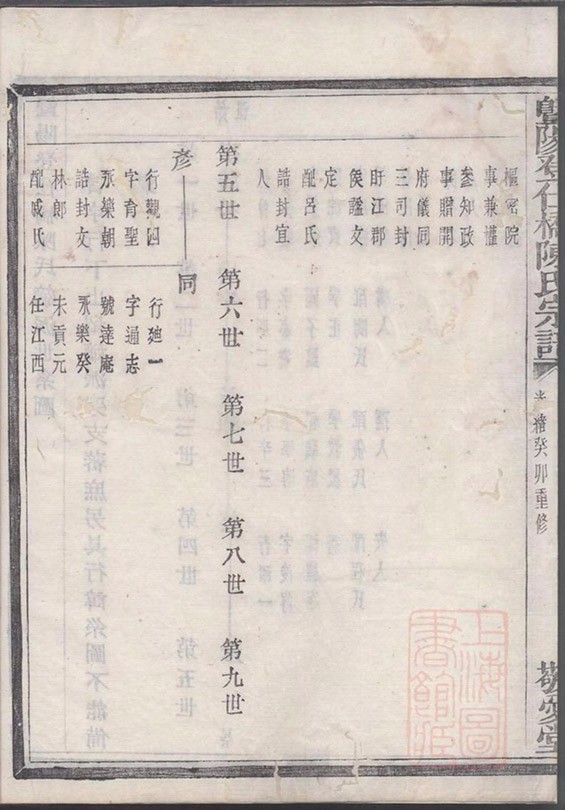 暨陽孝仁橋陳氏宗譜
光緒癸卯重修
敬愛堂
樞密院
事兼權
參知政
事贈開
府儀同
三司封
盱江郡
侯諡文
定
配呂氏
誥封宜
人
第五世 第六世 第七世 第八世 第九世
彥 同
行觀四
字育聖
永樂朝
誥封文
林郎
配戚氏
行廸一
字通志
號達庵
永樂癸
未貢元
任江西
上海圖
書館藏